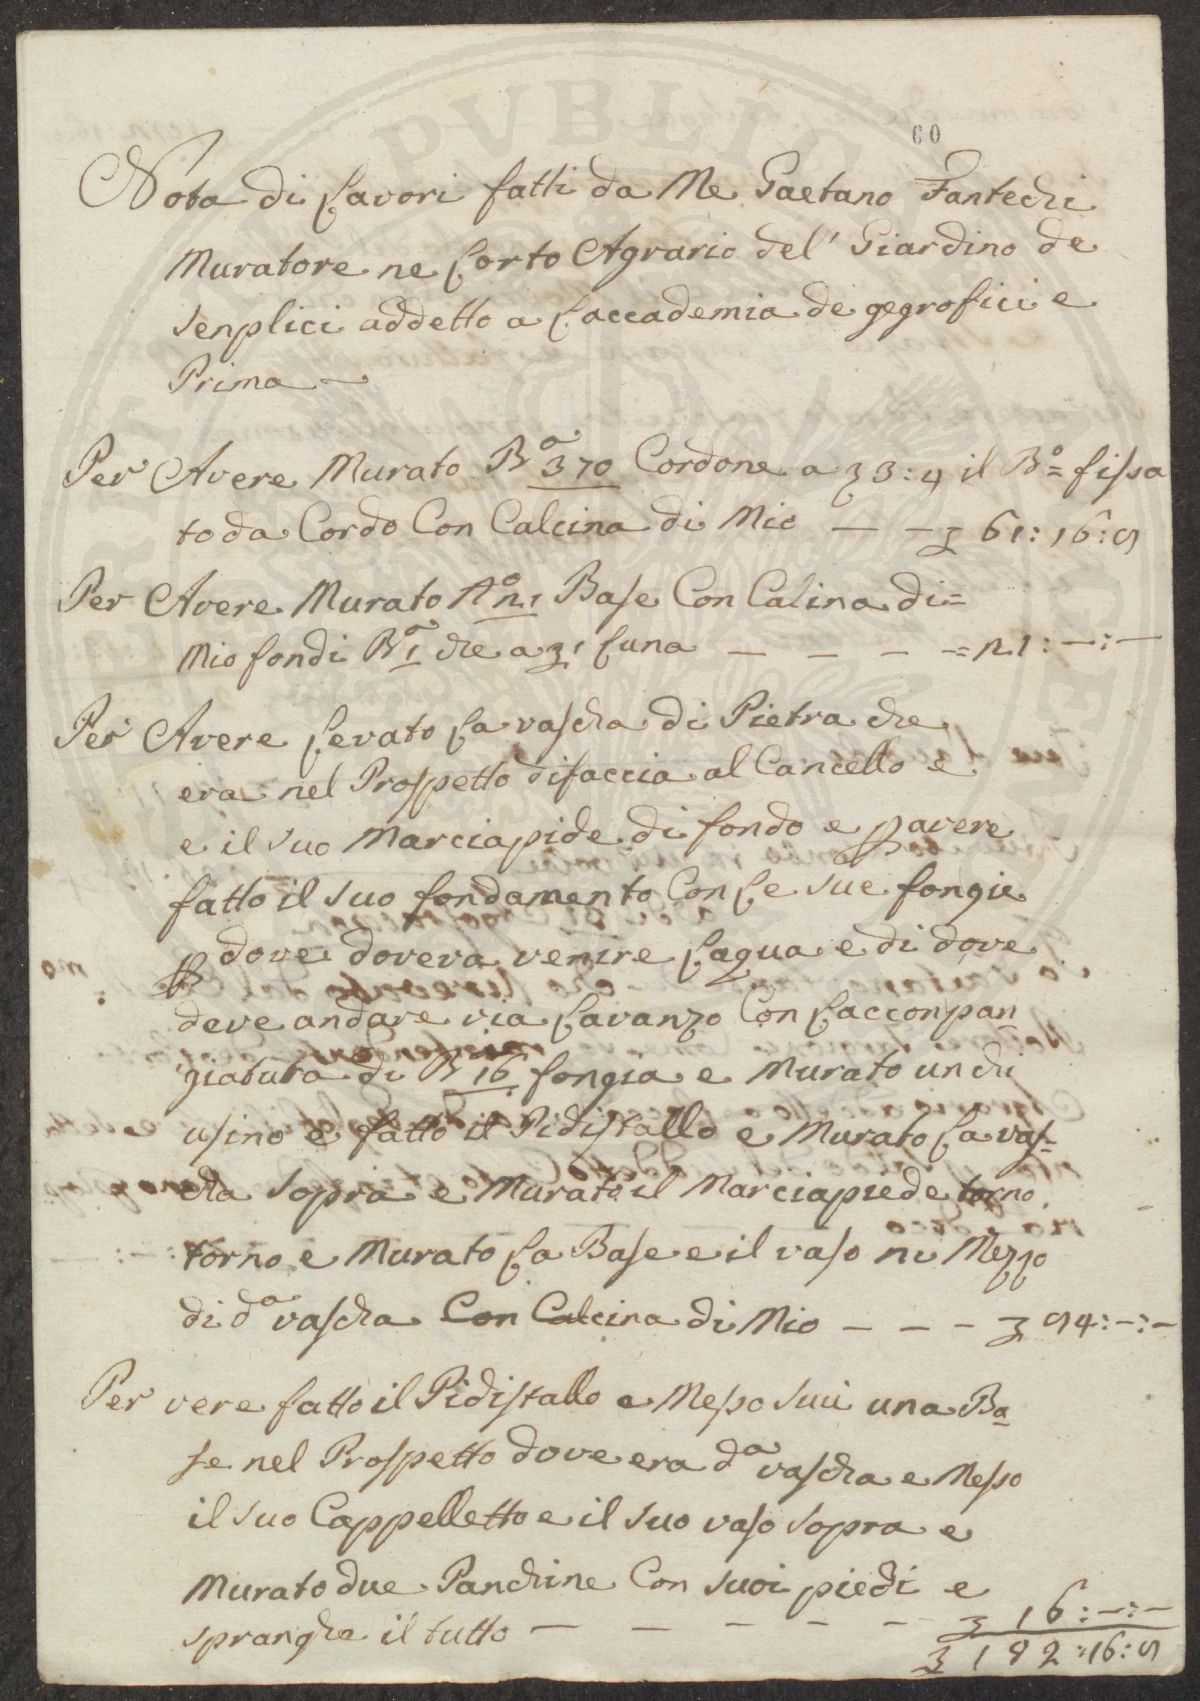 60
Nota di Lavori fatti da Me Gaetano Fantechi
Muratore ne Lorto Agrario del' Giardino de
Senplici addetto a Laccademia de gegrofici e
Prima —
Per Avere Murato Bª 370 Cordone a 3:4 il Bº= fissa
to da Cordo Con Calcina di Mio — — 61:16:
Per Avere Murato Nº 21 Base Con Calina di=
Mio fondi Bª 1 che a 1 Luna — — — — = 21:—:—
Per Avere Levato La vascha di Pietra che
era nel Prospetto difaccia al Cancello e
e il suo Marciapide di fondo e p avere
fatto il suo fondamento Con Le sue fongie
p dove doveva venire Laqua e di dove
deve andare via Lavanzo Con Lacconpan
giatura di B 16 fongia e Murato un chi
usino e fatto il Pidistallo e Murato La vas=
cha Sopra e Murato il Marciapiede torno
torno e Murato La Base e il vaso ni Mezzo
di dª vascha Con Calcina di Mio — — — 94:—:—
Per vere fatto il Pidistallo e Messo Sui una Ba
se nel Prospetto dove era dª vascha e Messo
il suo Cappelletto e il suo vaso sopra e
Murato due Panchine Con suoi piedi e
spranghe il tutto — — — — — 16:—:—
192:16: